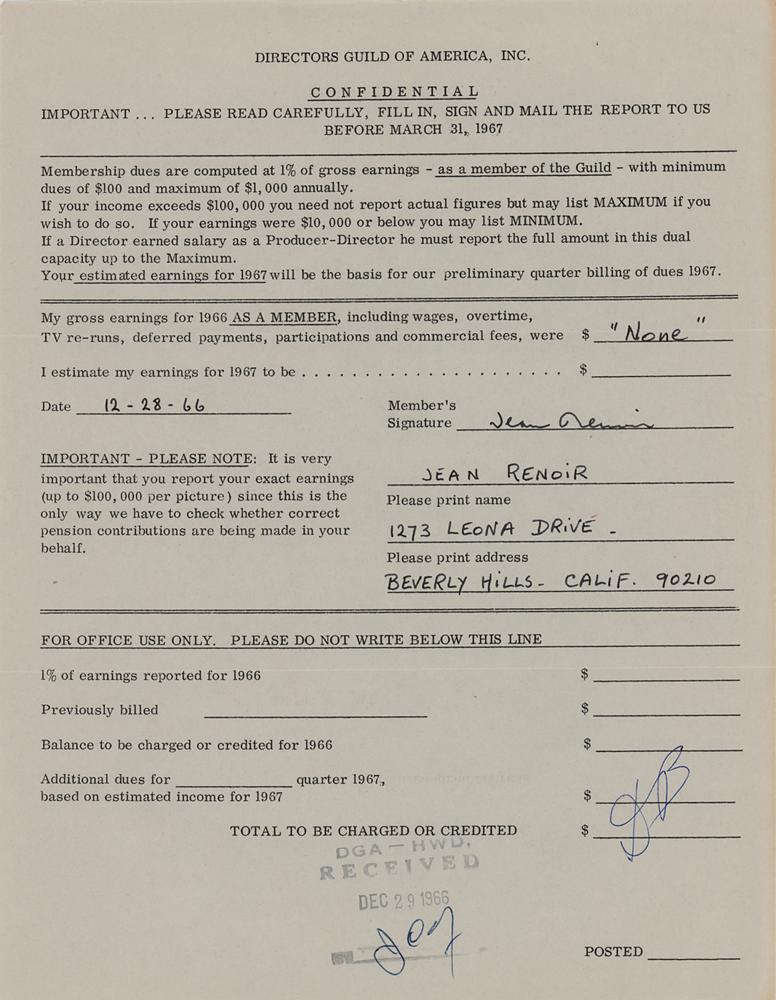 DIRECTORS GUILD OF AMERICA, INC.
CONFIDENTIAL
IMPORTANT ... PLEASE READ CAREFULLY, FILL IN, SIGN AND MAIL THE REPORT TO US
BEFORE MARCH 31, 1967
Membership dues are computed at 1% of gross earnings - as a member of the Guild - with minimum
dues of $100 and maximum of $1,000 annually.
If your income exceeds $100,000 you need not report actual figures but may list MAXIMUM if you
wish to do so. If your earnings were $10,000 or below you may list MINIMUM.
If a Director earned salary as a Producer-Director he must report the full amount in this dual
capacity up to the Maximum.
Your estimated earnings for 1967 will be the basis for our preliminary quarter billing of dues 1967.
My gross earnings for 1966 AS A MEMBER, including wages, overtime,
TV re-runs, deferred payments, participations and commercial fees, were $ "None"
I estimate my earnings for 1967 to be . . . . . . . . . . . . . . . . . . . . . . $
Date 12 - 28 - 66
Member's
Signature Jean Renoir
IMPORTANT - PLEASE NOTE: It is very
important that you report your exact earnings
(up to $100,000 per picture) since this is the
only way we have to check whether correct
pension contributions are being made in your
behalf.
JEAN RENOIR
Please print name
1273 LEONA DRIVE -
Please print address
BEVERLY HILLS - CALIF. 90210
FOR OFFICE USE ONLY. PLEASE DO NOT WRITE BELOW THIS LINE
1% of earnings reported for 1966 $
Previously billed $
Balance to be charged or credited for 1966 $
Additional dues for quarter 1967,
based on estimated income for 1967 $
TOTAL TO BE CHARGED OR CREDITED $
DGA - HWD.
RECEIVED
DEC 29 1966
POSTED